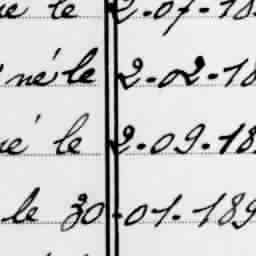 le 2-07-18
né le 2-02-18
le 2-09-18
le 30-01-189